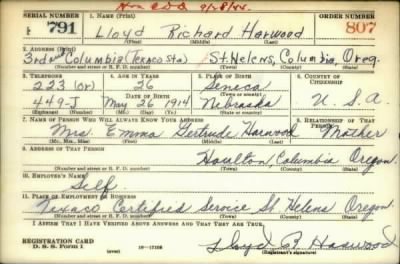 SERIAL NUMBER
1. NAME (Print)
ORDER NUMBER
791
Lloyd Richard Harwood
807
(First) (Middle) (Last)
2. ADDRESS (Print)
3rd & Columbia (Texaco Sta) St. Helens, Columbia, Oreg.
(Number and street or R. F. D. number) (Town) (County) (State)
3. TELEPHONE
4. AGE IN YEARS
5. PLACE OF BIRTH
6. COUNTRY OF CITIZENSHIP
223 (or)
26
Seneca
DATE OF BIRTH
(Town or county)
449-J
May 26 1914
Nebraska
U. S. A.
(Exchange) (Number)
(Mo.) (Day) (Yr.)
(State or country)
7. NAME OF PERSON WHO WILL ALWAYS KNOW YOUR ADDRESS
8. RELATIONSHIP OF THAT PERSON
Mrs. Emma Gertrude Harwood
Mother
(Mr., Mrs., Miss) (First) (Middle) (Last)
9. ADDRESS OF THAT PERSON
Houlton, Columbia Oregon.
(Number and street or R. F. D. number) (Town) (County) (State)
10. EMPLOYER'S NAME
Self.
11. PLACE OF EMPLOYMENT OR BUSINESS
Texaco Certified Service St. Helens Oregon.
(Number and street or R. F. D. number) (Town) (County) (State)
I AFFIRM THAT I HAVE VERIFIED ABOVE ANSWERS AND THAT THEY ARE TRUE.
REGISTRATION CARD
D. S. S. Form 1
16-17105
Lloyd R Harwood
(Registrant's signature)